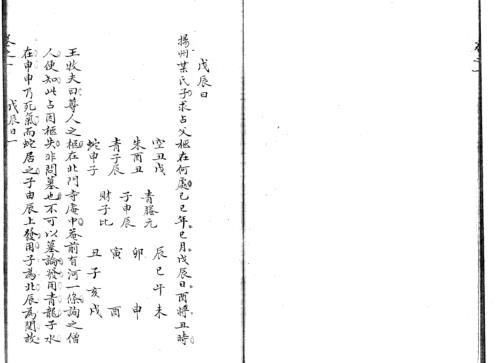 戊辰日
揚州葉氏子求占父柩在何處己巳年巳月戊辰日酉將丑時
空丑戌 辰巳午未
青螣元
朱酉丑 卯 申
子申辰
青子辰 寅 酉
財子比
蛇申子 丑子亥戌
王牧夫曰尊人之柩在北門寺庵中菴前有河一條詢之僧
人便知此占因柩失非問墓也不可以墓論發用青龍子水
在申申乃死氣而蛇居之子由辰上發用子為北辰為關故
卷之一 戊辰日一